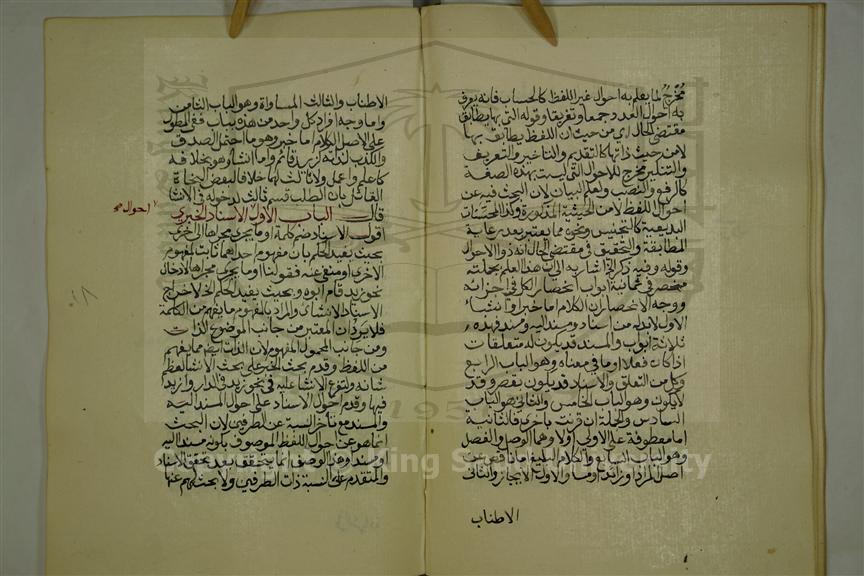 مخرج لما يعلم به احوال غير اللفظ كالحساب فانه يعرف
به احوال العدد جمعا وتفريقا وقوله التي بها يطابق
مقتضى الحال اي من حيث ان اللفظ يطابق بها
لا من حيث ذاتها كالتقديم والتاخير والتعريف
والتنكير مخرج للاحوال التي ليست بهذه الصفة
كالرفع والنصب ولعلم البيان لان البحث فيه عن
احوال اللفظ لا من الحيثية المذكورة وكذا المحسنات
البديعية كالتجنيس ونحوه مما يعتبر بعد رعاية
المطابقة والتحقيق في مقتضى الحال انه ذو الاحوال
وقوله وفيه ذكر الخ اشار به الى ان هذا العلم بجملته
منحصر في ثمانية ابواب انحصار الكل في اجزائه
ووجه الانحصار ان الكلام اما خبر او انشاء
الاول لابد له من اسناد ومسند اليه ومسند فهذه
ثلاثة ابواب والمسند قد يكون له متعلقات
اذا كان فعلا او ما في معناه وهو الباب الرابع
وكل من التعلق والاسناد قد يكون بقصر وقد
لا يكون وهو الباب الخامس والثاني هو الباب
السادس والجملة ان قرنت باخرى فالثانية
اما معطوفة على الاولى او لا وهما الوصل والفصل
وهو الباب السابع والكلام البليغ اما ناقص عن
اصل المراد او زائد او مساو الاول الايجاز والثاني
الاطناب
الاطناب والثالث المساواة وهو الباب الثامن
واما وجه افراد كل واحد من هذه بباب ففي المطول
على الاصل الكلام اما خبر وهو ما احتمل الصدق
والكذب لذاته كزيد قائم واما انشا وهو بخلافه
كاعلم واعمل ولا ثالث لهما خلافا لبعض النحاة
القائل بان الطلب قسم ثالث لدخوله في الانشا
قال الباب الاول الاسناد الخبري
احوال صح
اقول الاسناد ضم كلمة او ما يجري مجراها الى اخرى
بحيث يفيد الحكم بان مفهوم احداهما ثابت لمفهوم
الاخرى او منفي عنه فقولنا او ما يجري مجراها لادخال
نحو زيد قام ابوه وبحيث يفيد الحكم الخ لاخراج
الاسناد الانشائي والمراد بالمفهوم ما يفهم من الكلمة
فلا يرد ان المعتبر من جانب الموضوع الذات
ومن جانب المحمول المفهوم لان الذات ايضا مما يفهم
من اللفظ وقدم بحث الخبر على بحث الانشا لعظم
شانه ولتفرع الانشا عليه في نحو زيد في الدار وازيد
فيها وقدم احوال الاسناد على احوال المسند اليه
والمسند مع تاخر النسبة عن الطرفين لان البحث
انما هو عن احوال اللفظ الموصوف بكونه مسندا اليه
او مسندا وهذا الوصف انما يتحقق بعد تحقق الاسناد
والمتقدم على النسبة ذات الطرفين ولا بحث لهم عنها